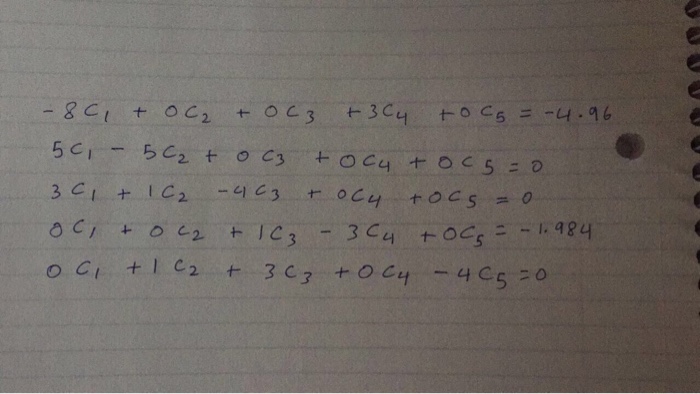 -8C1 + 0C2 + 0C3 + 3C4 + 0C5 = -4.96
5C1 - 5C2 + 0C3 + 0C4 + 0C5 = 0
3C1 + 1C2 - 4C3 + 0C4 + 0C5 = 0
0C1 + 0C2 + 1C3 - 3C4 + 0C5 = -1.984
0C1 + 1C2 + 3C3 + 0C4 - 4C5 = 0